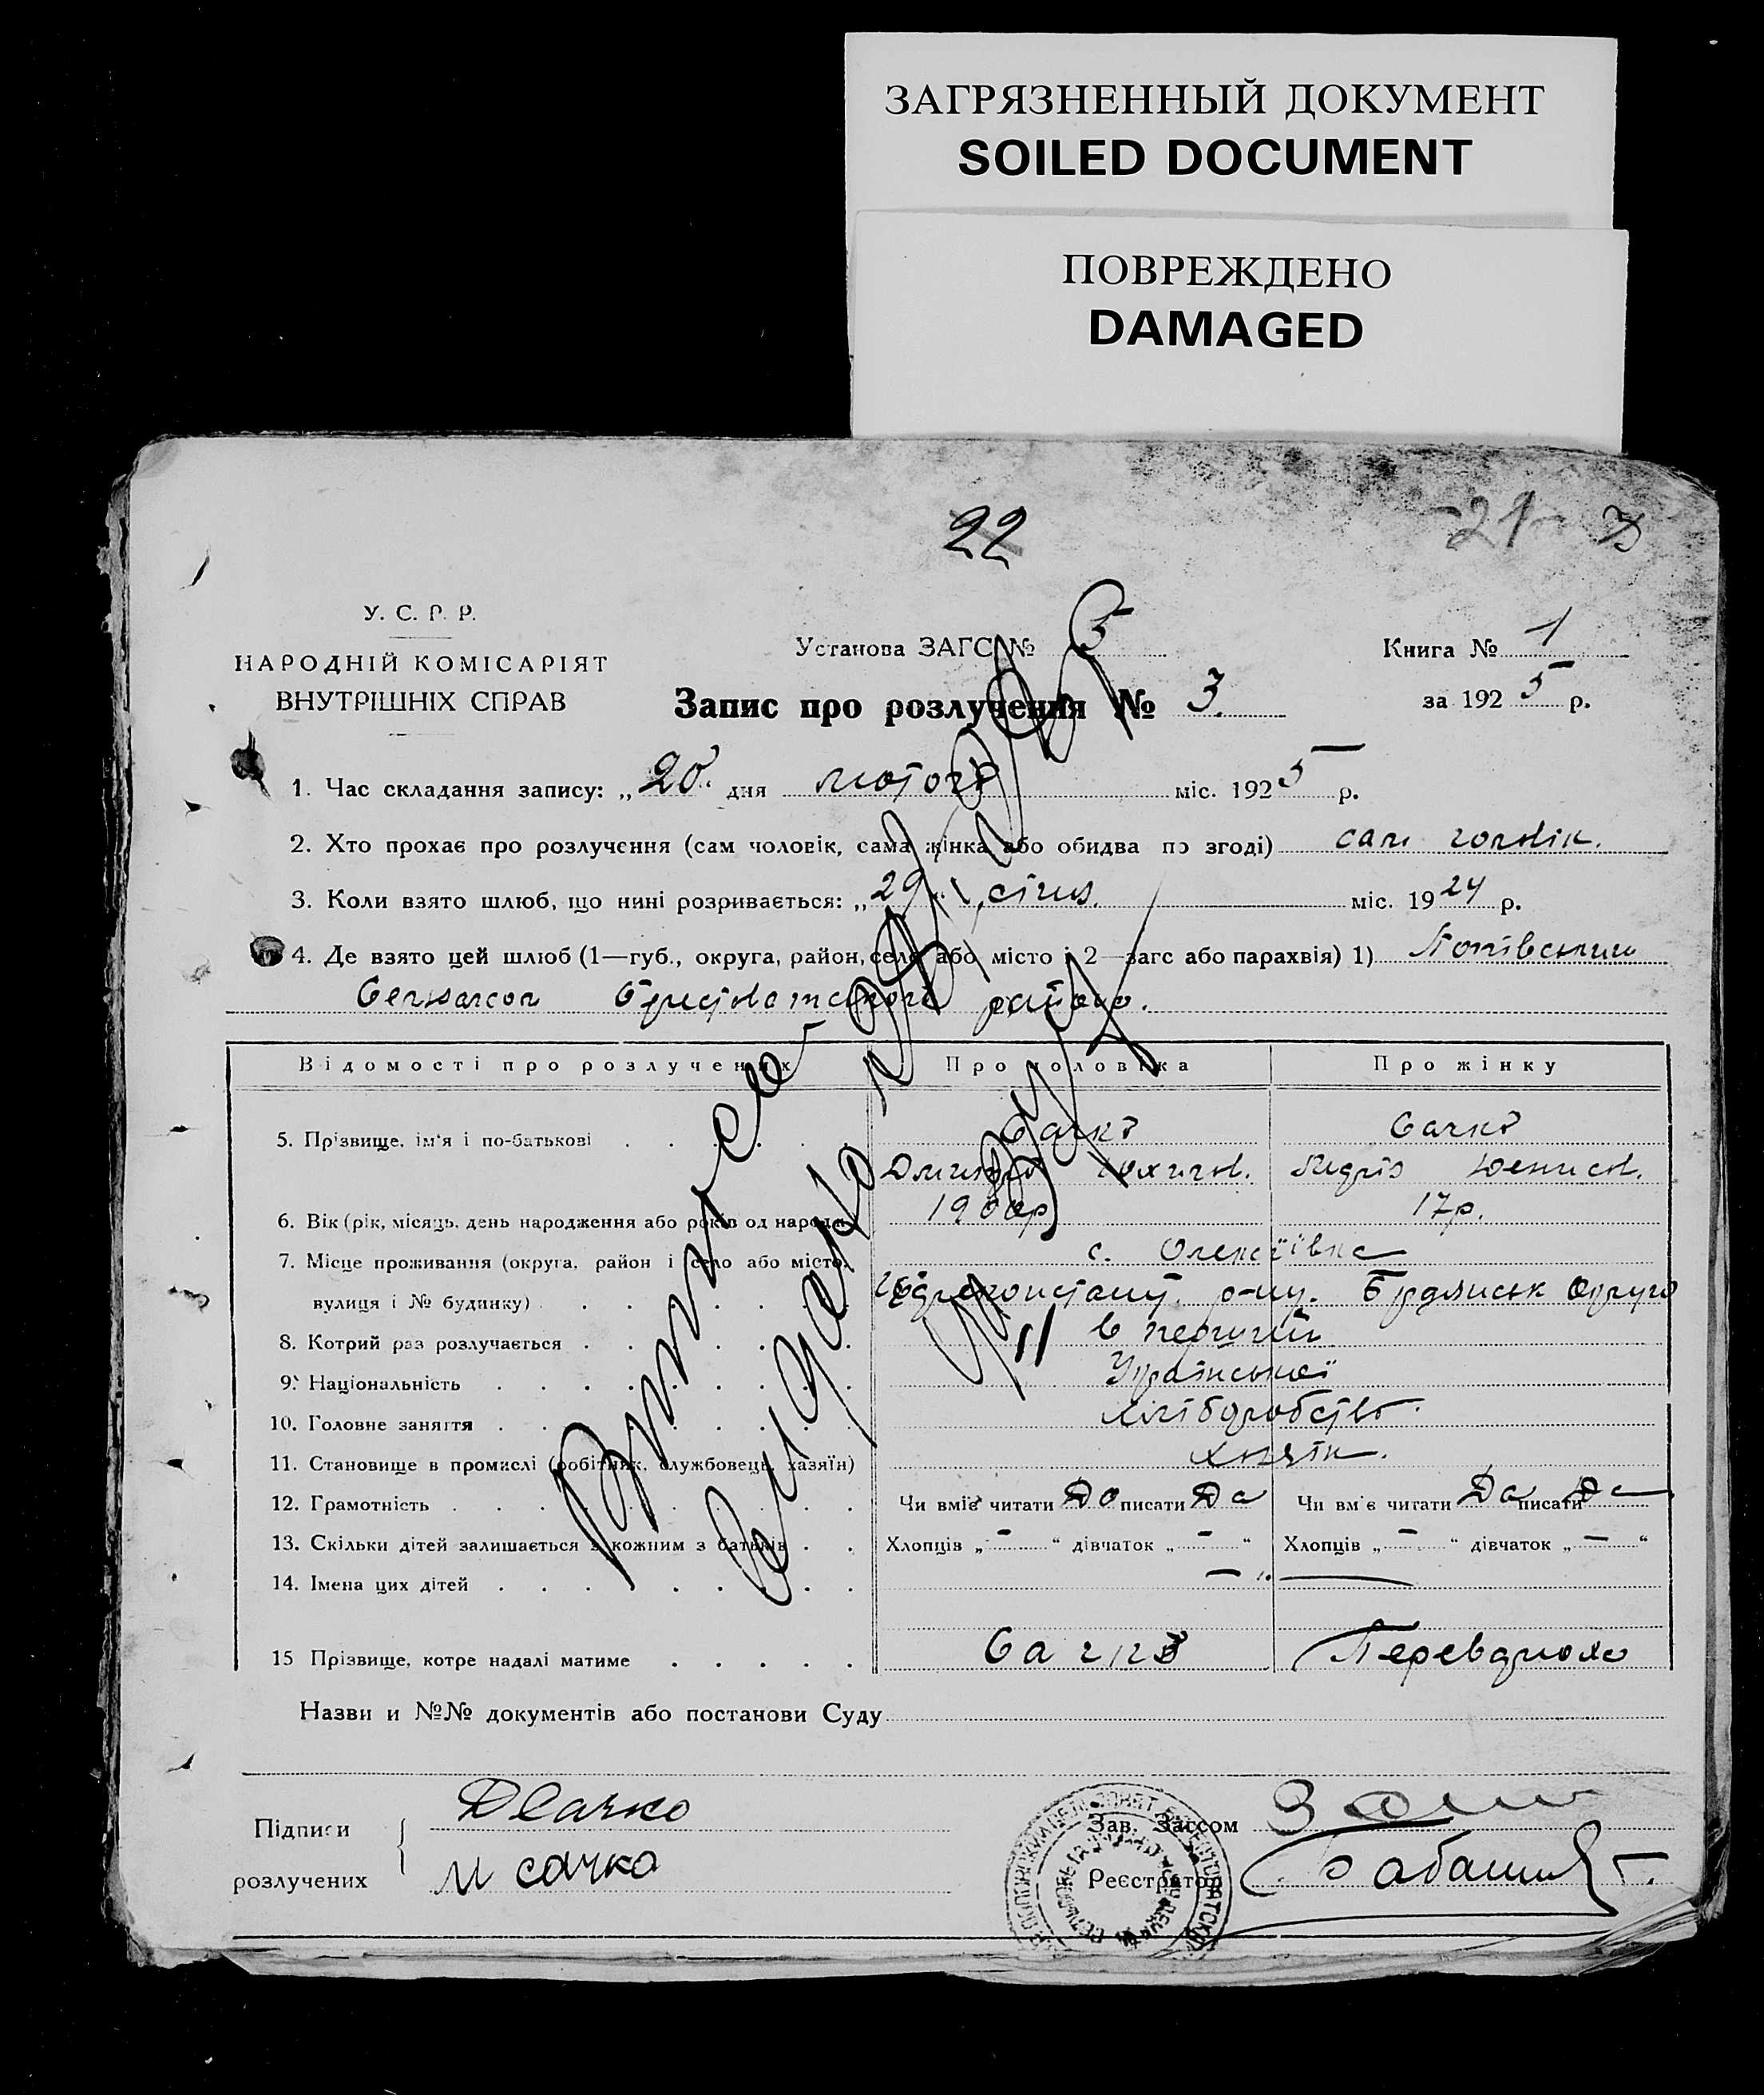 ЗАГРЯЗНЕННЫЙ ДОКУМЕНТ
SOILED DOCUMENT
ПОВРЕЖДЕНО
DAMAGED
22
21
У. С. Р. Р.
НАРОДНІЙ КОМІСАРІЯТ
ВНУТРІШНІХ СПРАВ
Установа ЗАГС № 3
Книга № 1
Запис про розлучення № 3.
за 1925 р.
1. Час складання запису: „20" дня лютого міс. 1925 р.
2. Хто прохає про розлучення (сам чоловік, сама жінка або обидва по згоді) сам
3. Коли взято шлюб, що нині розривається: „29" січня. міс. 1924 р.
4. Де взято цей шлюб (1—губ., округа, район, село або місто і 2—загс або парахвія) 1) Попівським
району.
Відомості про розлучених
Про чоловіка
Про жінку
5. Прізвище, ім'я і по-батькові
Сачко
Сачко
Дмитро
Денисов.
6. Вік (рік, місяць, день народження або років од народж.)
17р.
7. Місце проживання (округа, район і село або місто,
с. Олексіївка
вулиця і № будинку)
р-ну. Бердянськ округа
8. Котрий раз розлучається
в перший
9. Національність
Української
10. Головне заняття
хліборобство.
11. Становище в промислі (робітник, службовець, хазяїн)
хазяїн.
12. Грамотність
Чи вміє читати Да писати Да
Чи вміє читати Да писати Да
13. Скільки дітей залишається з кожним з батьків
Хлопців „ — " дівчаток „ — "
Хлопців „ — " дівчаток „ — "
14. Імена цих дітей
15 Прізвище, котре надалі матиме
Сачко
Назви и №№ документів або постанови Суду
Підписи
розлучених
Д Сачко
М сачко
Зав. Загсом
Реєстратор